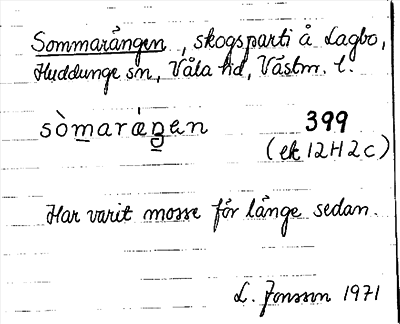 Sommarången, skogsparti å Lagbo,
Huddunge sn, Våla hd, Västm. l.
sòmaráŋen 399
(ek 12H2c)
Har varit mosse för länge sedan.
L. Jonsson 1971